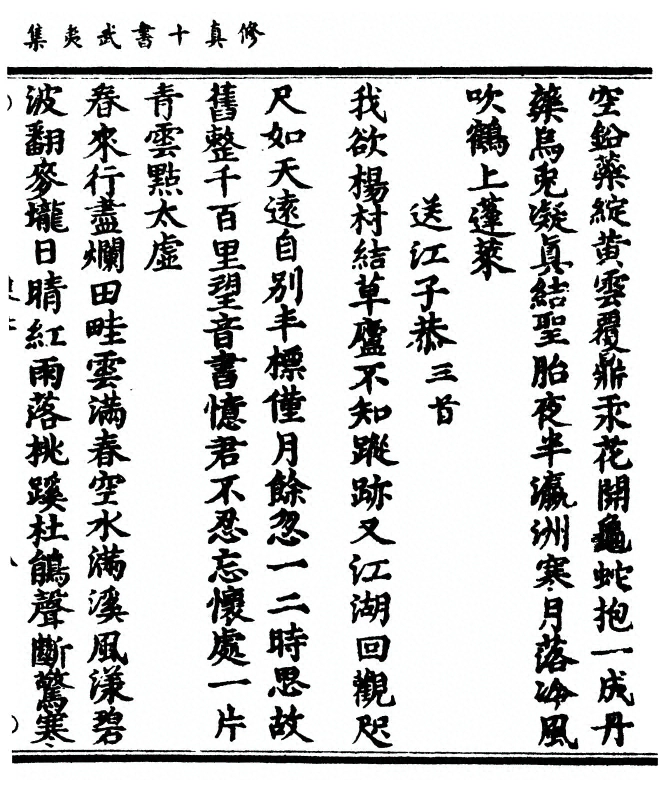 修真十書武夷集
空鉛藥綻黃雲覆鼎汞花開龜蛇抱一成丹
藥烏兎凝眞結聖胎夜半瀛洲寒月落冷風
吹鶴上蓬萊
送江子恭三首
我欲楊村結草廬不知蹤跡又江湖回觀咫
尺如天遠自別丰標僅月餘忽一二時思故
舊整千百里望音書憶君不忍忘懷處一片
青雲點太虛
春來行盡爛田畦雲滿春空水滿溪風漾碧
波翻麥壠日晴紅雨落桃蹊杜鵑聲斷驚寒